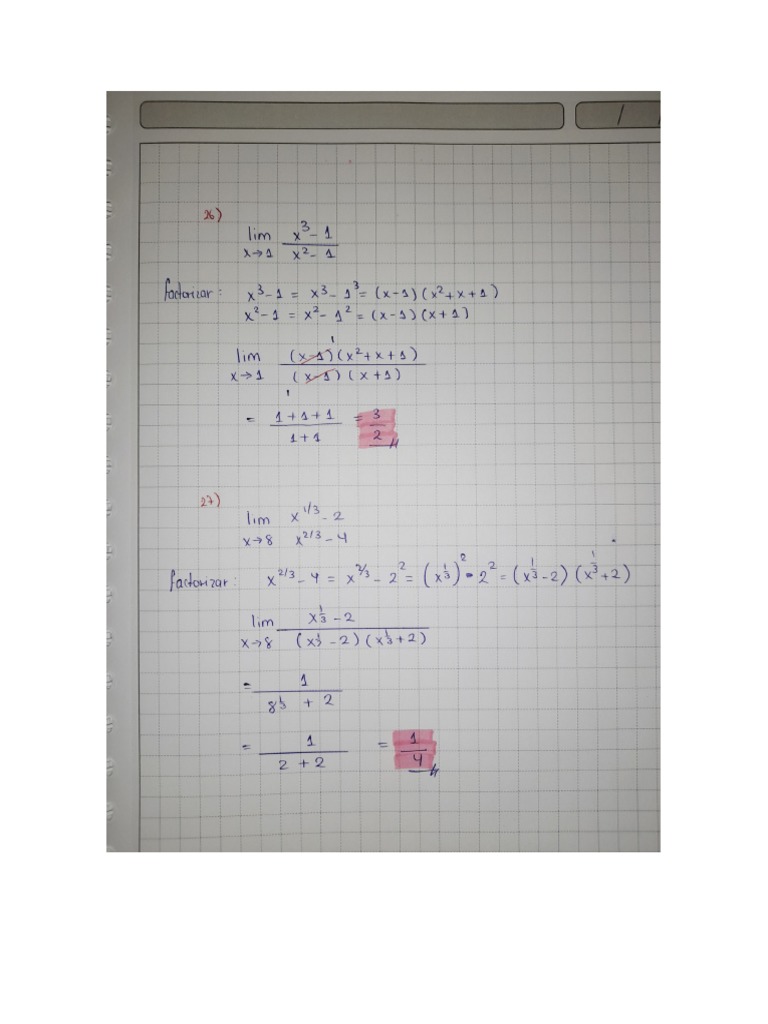 26)
lim x→1 (x³ - 1)/(x² - 1)
factorizar: x³ - 1 = x³ - 1³ = (x - 1)(x² + x + 1)
x² - 1 = x² - 1² = (x - 1)(x + 1)
lim x→1 (x - 1)(x² + x + 1)/(x - 1)(x + 1)
= (1 + 1 + 1)/(1 + 1) = 3/2
27)
lim x→8 (x^1/3 - 2)/(x^2/3 - 4)
factorizar: x^2/3 - 4 = x^2/3 - 2² = (x^1/3)² - 2² = (x^1/3 - 2)(x^1/3 + 2)
lim x→8 (x^1/3 - 2)/((x^1/3 - 2)(x^1/3 + 2))
= 1/(8^1/3 + 2)
= 1/(2 + 2) = 1/4